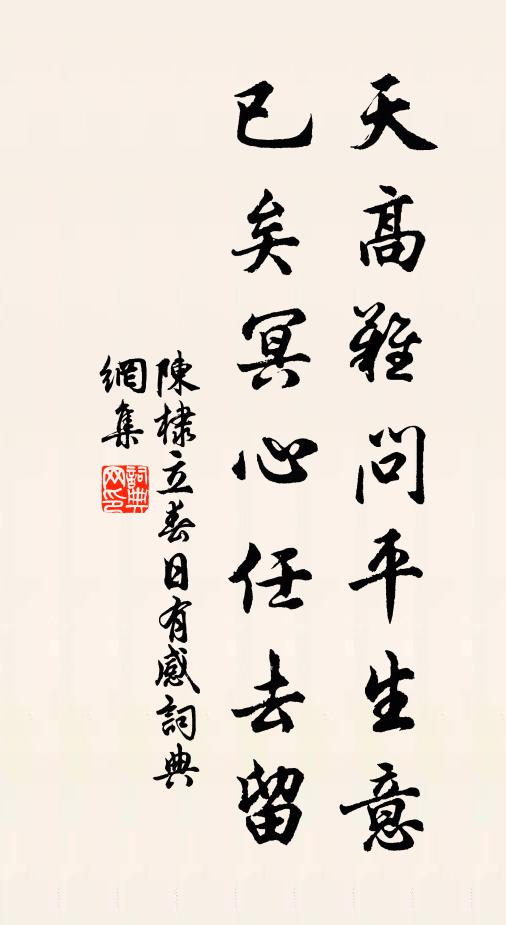 天高難問平生意
已矣冥心任去留
陳棣立春日有感詞典
網集
詞典
网印